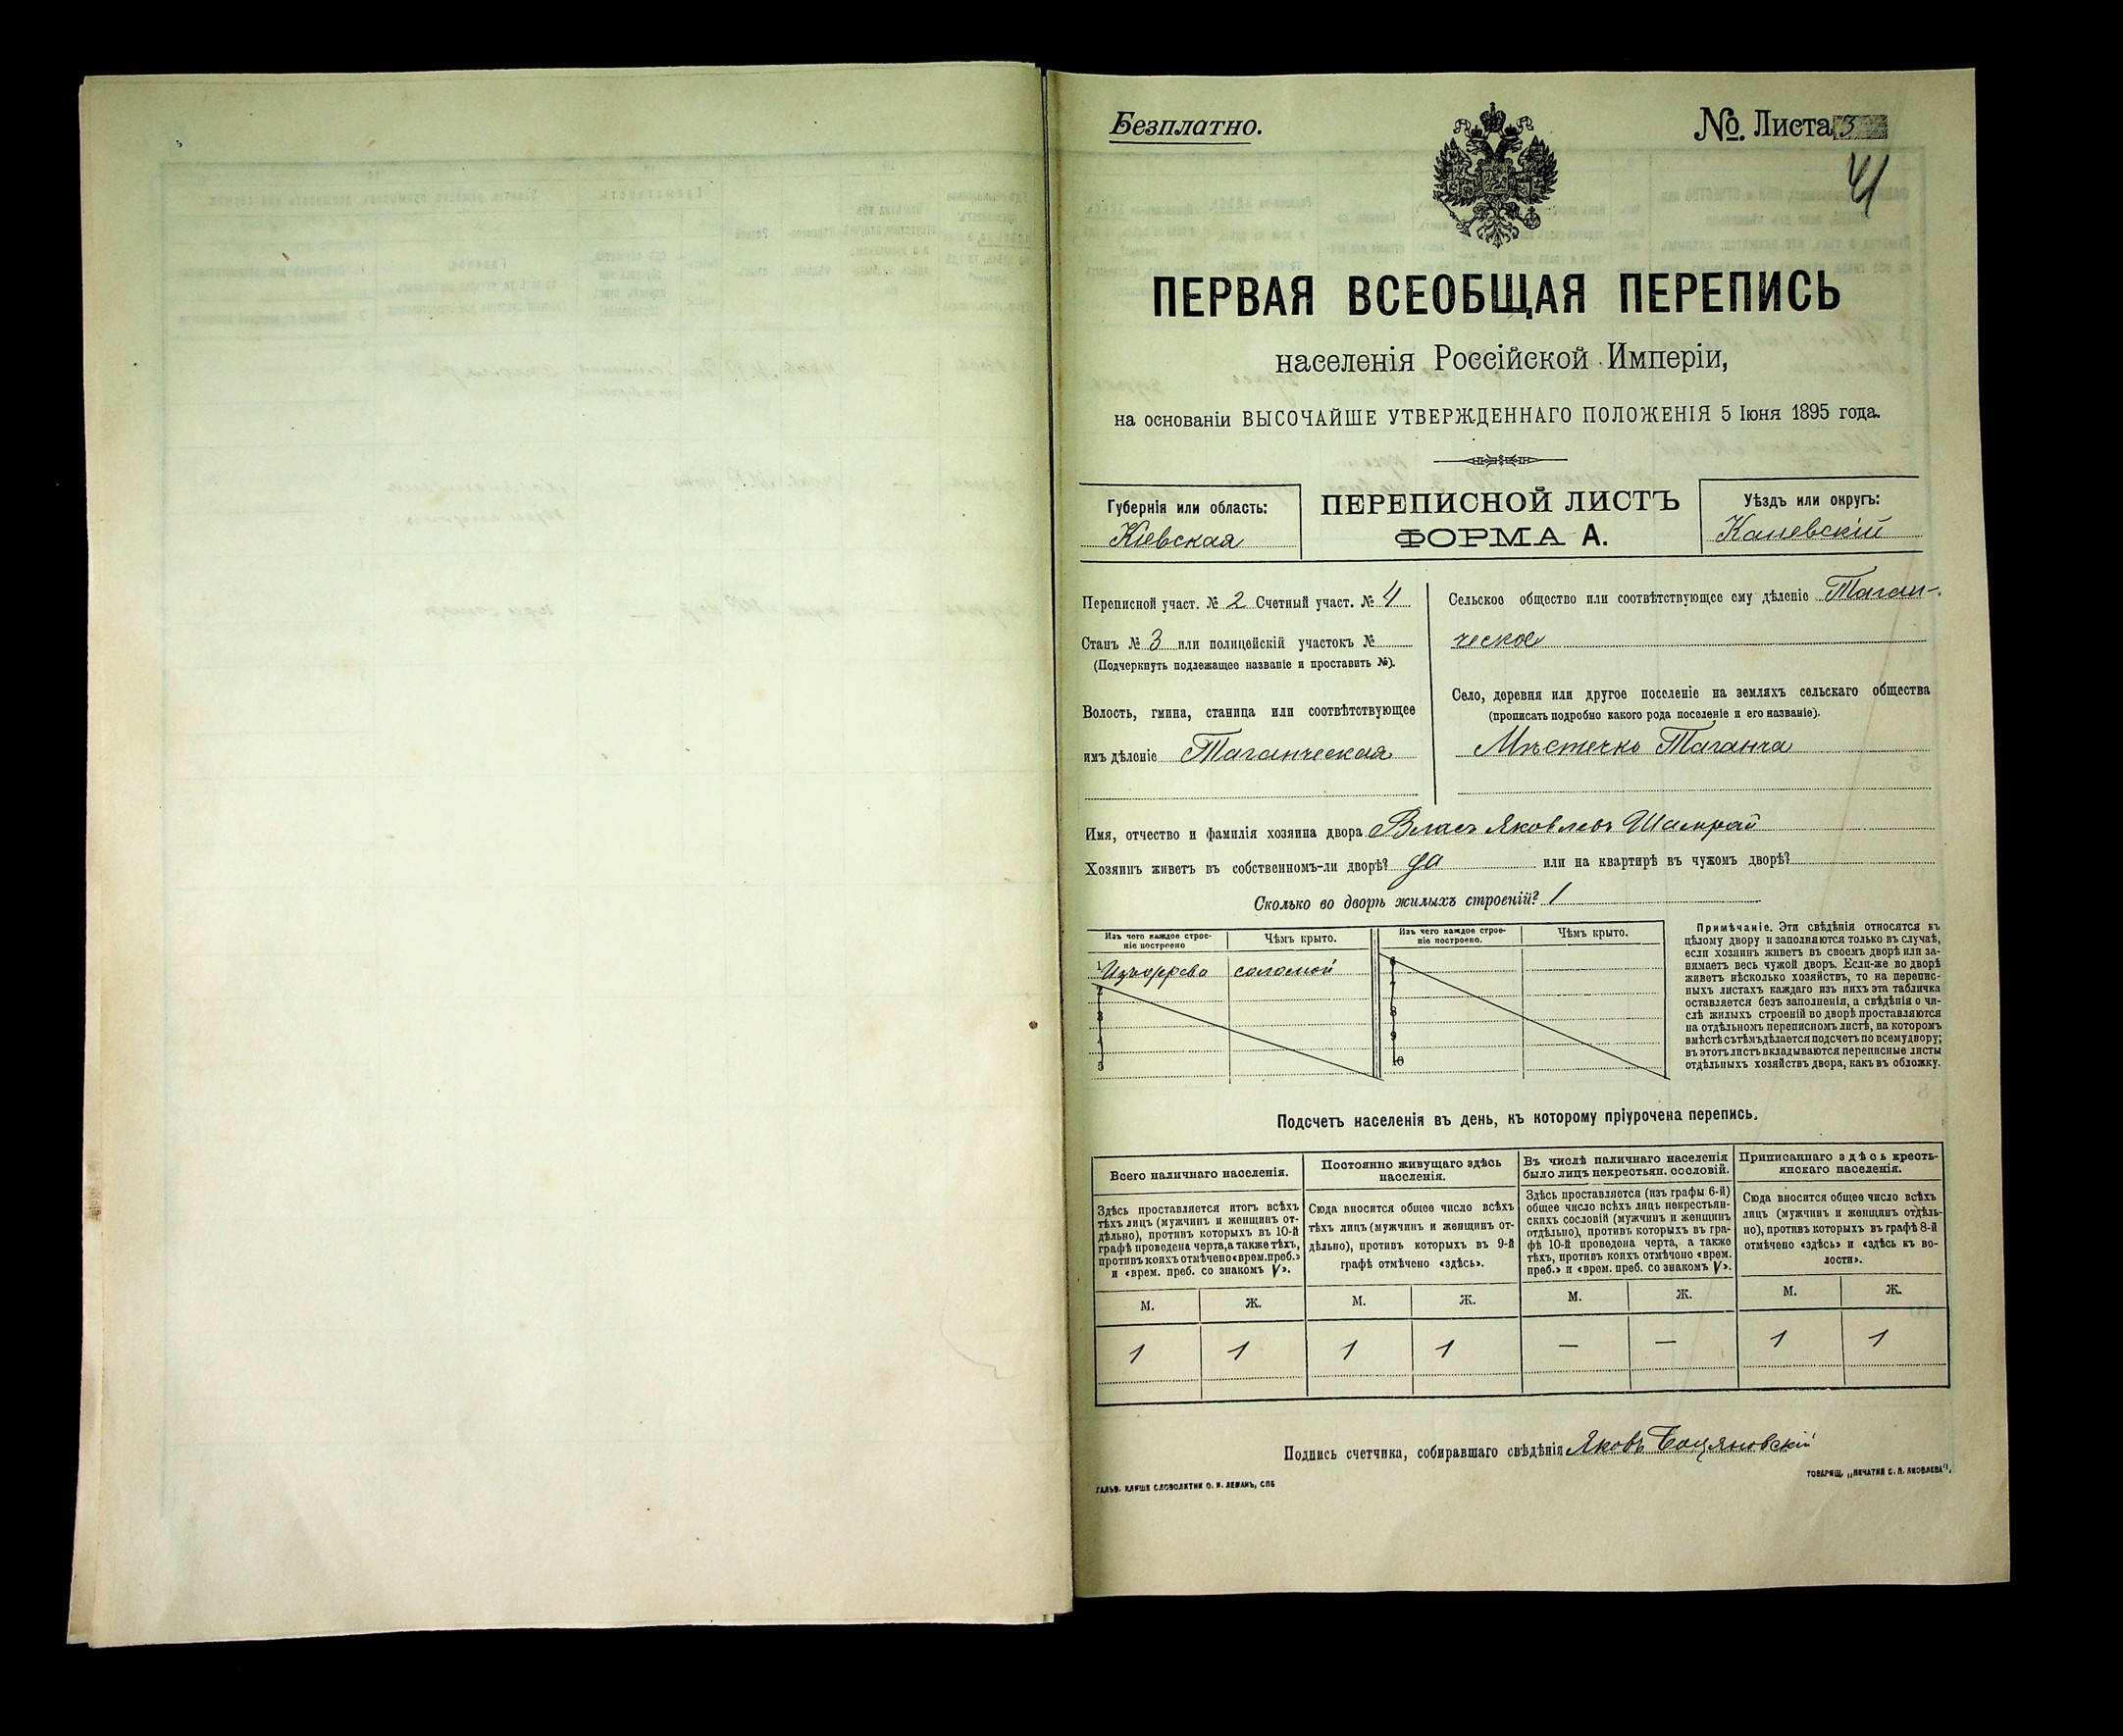 Безплатно.
№. Листа 3
41
ПЕРВАЯ ВСЕОБЩАЯ ПЕРЕПИСЬ
населенія Россійской Имперіи,
на основаніи ВЫСОЧАЙШЕ УТВЕРЖДЕННАГО ПОЛОЖЕНІЯ 5 Іюня 1895 года.
Губернія или область:
Кіевская
ПЕРЕПИСНОЙ ЛИСТЪ
ФОРМА А.
Уѣздъ или округъ:
Каневскій
Переписной участ. № 2 Счетный участ. № 4
Станъ № 3 или полицейскій участокъ №
(Подчеркнуть подлежащее названіе и проставить №).
Волость, гмина, станица или соотвѣтствующее
имъ дѣленіе Таганческая
Сельское общество или соотвѣтствующее ему дѣленіе Таган-
ческое
Село, деревня или другое поселеніе на земляхъ сельскаго общества
(прописать подробно какого рода поселеніе и его названіе).
Мѣстечко Таганча
Имя, отчество и фамилія хозяина двора Власъ Яковлевъ Шамрай
Хозяинъ живетъ въ собственномъ-ли дворѣ? да или на квартирѣ въ чужомъ дворѣ?
Сколько во дворѣ жилыхъ строеній? 1
Изъ чего каждое строе-
ніе построено
Чѣмъ крыто.
Изъ чего каждое строе-
ніе построено.
Чѣмъ крыто.
1 соломой
2
3
4
5
6
7
8
9
10
Примѣчаніе. Эти свѣдѣнія относятся къ
цѣлому двору и заполняются только въ случаѣ,
если хозяинъ живетъ въ своемъ дворѣ или за-
нимаетъ весь чужой дворъ. Если-же во дворѣ
живетъ нѣсколько хозяйствъ, то на перепис-
ныхъ листахъ каждаго изъ нихъ эта табличка
оставляется безъ заполненія, а свѣдѣнія о чи-
слѣ жилыхъ строеній во дворѣ проставляются
на отдѣльномъ переписномъ листѣ, на которомъ
вмѣстѣ съ тѣмъ дѣлается подсчетъ по всему двору;
въ этотъ листъ вкладываются переписные листы
отдѣльныхъ хозяйствъ двора, какъ въ обложку.
Подсчетъ населенія въ день, къ которому пріурочена перепись.
Всего наличнаго населенія.
Здѣсь проставляется итогъ всѣхъ
тѣхъ лицъ (мужчинъ и женщинъ от-
дѣльно), противъ которыхъ въ 10-й
графѣ проведена черта, а также тѣхъ,
противъ коихъ отмѣчено «врем. преб.»
и «врем. преб. со знакомъ V».
Постоянно живущаго здѣсь
населенія.
Сюда вносится общее число всѣхъ
тѣхъ лицъ (мужчинъ и женщинъ от-
дѣльно), противъ которыхъ въ 9-й
графѣ отмѣчено «здѣсь».
Въ числѣ наличнаго населенія
было лицъ некрестьян. сословій.
Здѣсь проставляется (изъ графы 6-й)
общее число всѣхъ лицъ некрестьян-
скихъ сословій (мужчинъ и женщинъ
отдѣльно), противъ которыхъ въ гра-
фѣ 10-й проведена черта, а также
тѣхъ, противъ коихъ отмѣчено «врем.
преб.» и «врем. преб. со знакомъ V».
Приписаннаго здѣсь кресть-
янскаго населенія.
Сюда вносится общее число всѣхъ
лицъ (мужчинъ и женщинъ отдѣль-
но), противъ которыхъ въ графѣ 8-й
отмѣчено «здѣсь» и «здѣсь къ во-
лости».
М. Ж. М. Ж. М. Ж. М. Ж.
1 1 1 1 — — 1 1
Подпись счетчика, собиравшаго свѣдѣнія Яковъ Боцяновскій
ГАЛЬВ. КЛИШЕ СЛОВОЛИТНИ О. И. ЛЕМАНЪ, СПБ
ТОВАРИЩ. „ПЕЧАТНЯ С. П. ЯКОВЛЕВА“.